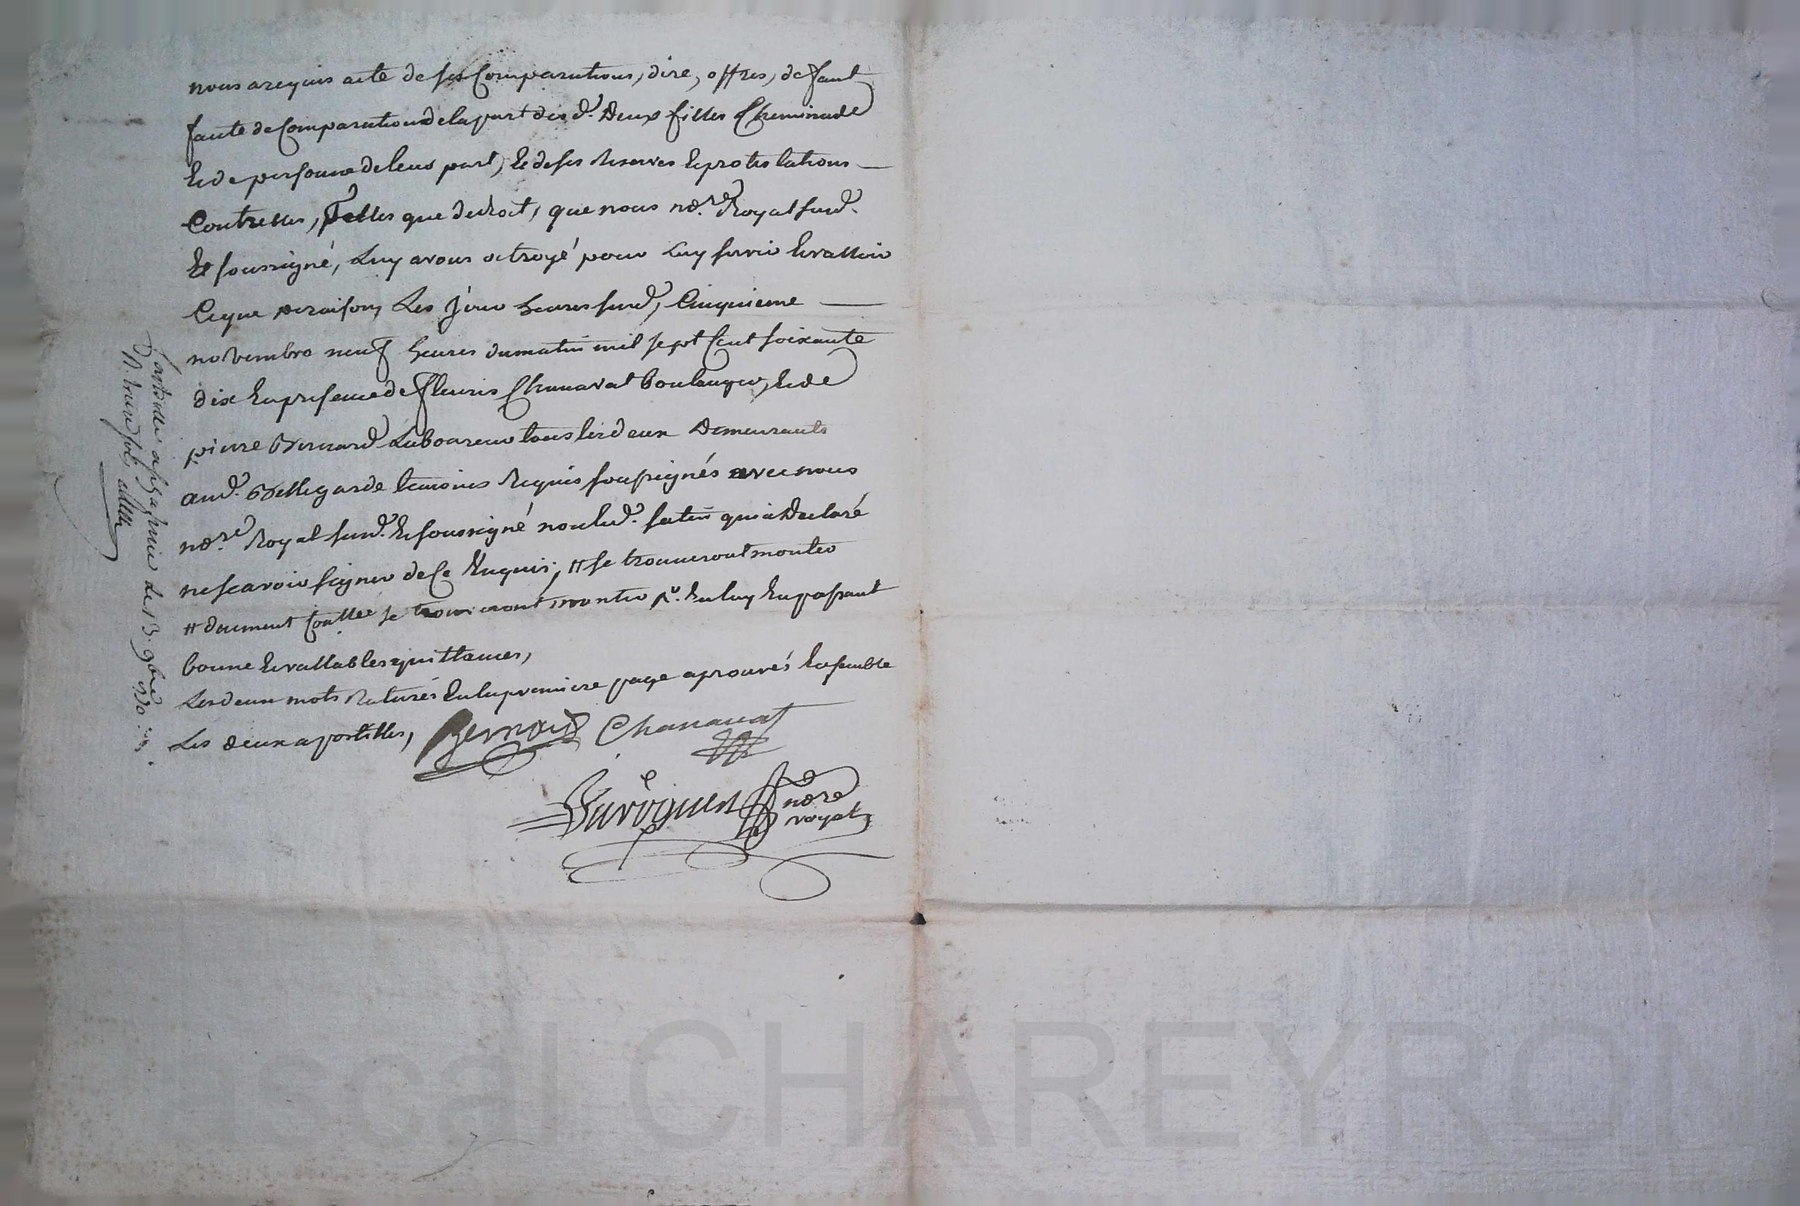 nous a requis acte de ses Comparutions, dire, offres, deffaut
faute de Comparution de la part desd. Deux filles Cheminade
Et de personne de leur part, Et de ses Reserves Et protestations
Contrelles, Telles que de droit, que nous nore. Royal susd.
Et soussigné, Luy avons octroyé pour Luy servir Et valloir
Ce que de raison, Les Jour heures susd, Cinquieme
novembre neuf heures du matin mil sept Cent soixante
dix En presence de fleuris Chanavat boulanger, Et de
pierre Bernard Laboureur tous les deux Demeurants
aud. Bellegarde temoins Requis soussignés avec nous
nore. Royal susd. Et soussigné non led. qui a Declaré
ne scavoir signer de Ce Enquis; # se trouveront monter
# duement se trouveront monter pr. En luy En passant
bonne Et vallables quittances,
Les deux mots Raturés En la premiere page aprouvés Ensemble
Les deux apostilles, Bernard Chanavat
nore
royal
Controllé a le 13 9bre 1770